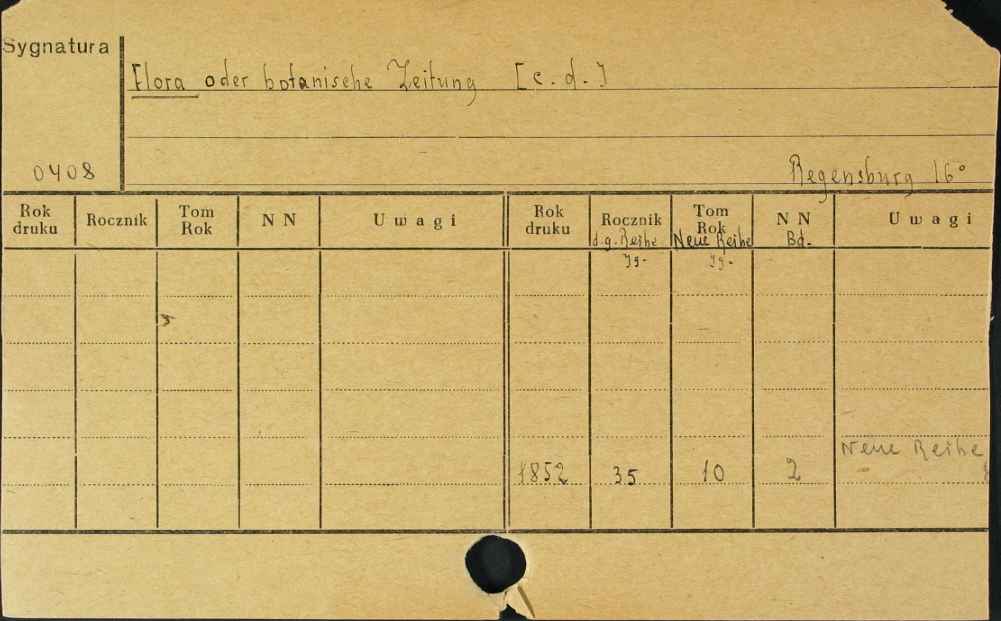 Sygnatura
Flora oder botanische Zeitung [c.d.]
0408
Regensburg 16°
Rok druku Rocznik Tom Rok NN Uwagi Rok druku Rocznik Tom Rok NN Uwagi
d.g. Reihe Neue Reihe Bd.
Jg. Jg.
Neue Reihe
1852 35 10 2